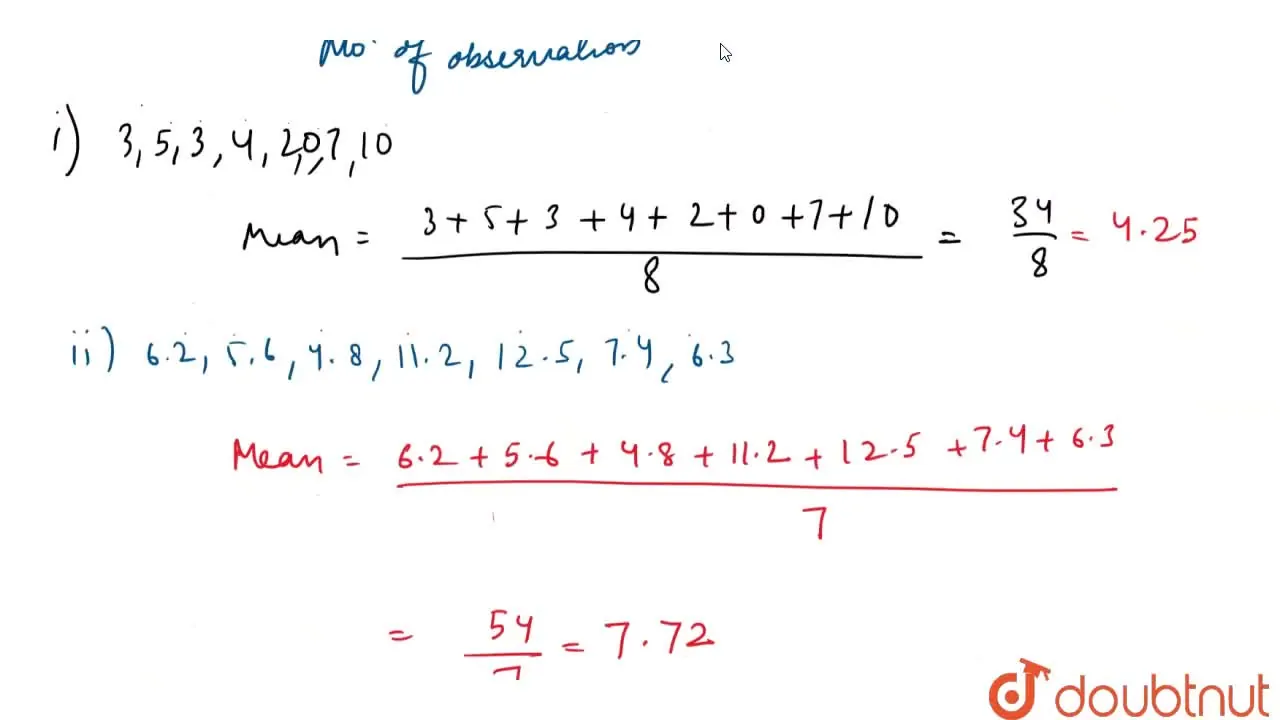 No. of observations
i) 3, 5, 3, 4, 2, 0, 7, 10
Mean = 3 + 5 + 3 + 4 + 2 + 0 + 7 + 10 / 8 = 34 / 8 = 4.25
ii) 6.2, 5.6, 4.8, 11.2, 12.5, 7.4, 6.3
Mean = 6.2 + 5.6 + 4.8 + 11.2 + 12.5 + 7.4 + 6.3 / 7
= 54 / 7 = 7.72
doubtnut